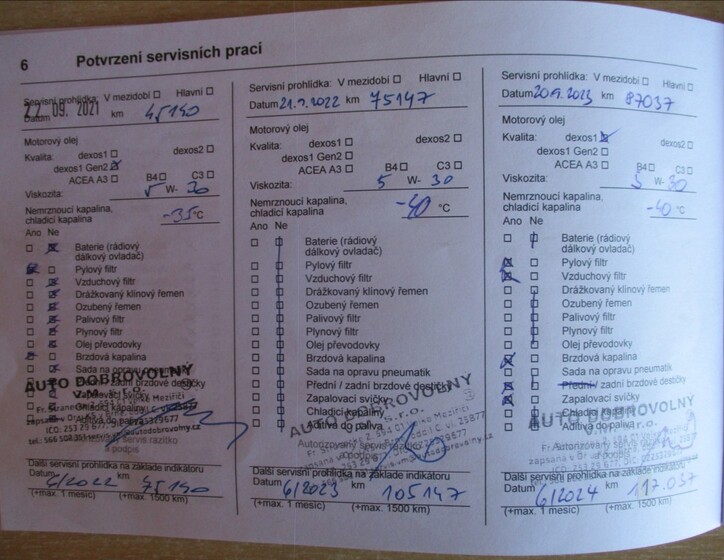 6 Potvrzení servisních prací
Servisní prohlídka: V mezidobí Hlavní
27. 09. 2021
Datum km 45190
Motorový olej
Kvalita: dexos1 dexos2
dexos1 Gen2
ACEA A3 B4 C3
Viskozita: 5 W- 30
Nemrznoucí kapalina,
chladicí kapalina -35 °C
Ano Ne
Baterie (rádiový
dálkový ovladač)
Pylový filtr
Vzduchový filtr
Drážkovaný klínový řemen
Ozubený řemen
Palivový filtr
Plynový filtr
Olej převodovky
Brzdová kapalina
Sada na opravu
AUTO DOBROVOLNÝ
zadní brzdové destičky
Zapalovací svíčky
Chladicí kapaliny
Aditiva do paliva
servis razítko
a podpis
Další servisní prohlídka na základě indikátorů
Datum 6/2022 km 75190
(+max. 1 měsíc) (+max. 1500 km)
Servisní prohlídka: V mezidobí Hlavní
Datum 21.9.2022 km 75147
Motorový olej
Kvalita: dexos1 dexos2
dexos1 Gen2
ACEA A3 B4 C3
Viskozita: 5 W- 30
Nemrznoucí kapalina,
chladicí kapalina -40 °C
Ano Ne
Baterie (rádiový
dálkový ovladač)
Pylový filtr
Vzduchový filtr
Drážkovaný klínový řemen
Ozubený řemen
Palivový filtr
Plynový filtr
Olej převodovky
Brzdová kapalina
Sada na opravu pneumatik
Přední / zadní brzdové destičky
Zapalovací svíčky
Chladicí kapaliny
Aditiva do paliva
AUTO DOBROVOLNÝ
Autorizovaný servis razítko
a podpis
Další servisní prohlídka na základě indikátorů
Datum 6/2023 km 105147
(+max. 1 měsíc) (+max. 1500 km)
Servisní prohlídka: V mezidobí Hlavní
Datum 20.9.2023 km 87037
Motorový olej
Kvalita: dexos1 dexos2
dexos1 Gen2
ACEA A3 B4 C3
Viskozita: 5 W- 30
Nemrznoucí kapalina,
chladicí kapalina -40 °C
Ano Ne
Baterie (rádiový
dálkový ovladač)
Pylový filtr
Vzduchový filtr
Drážkovaný klínový řemen
Ozubený řemen
Palivový filtr
Plynový filtr
Olej převodovky
Brzdová kapalina
Sada na opravu pneumatik
Přední / zadní brzdové destičky
Zapalovací svíčky
Chladicí kapaliny
Aditiva do paliva
AUTO DOBROVOLNÝ
Autorizovaný servis razítko
a podpis
Další servisní prohlídka na základě indikátorů
Datum 6/2024 km 117.037
(+max. 1 měsíc) (+max. 1500 km)